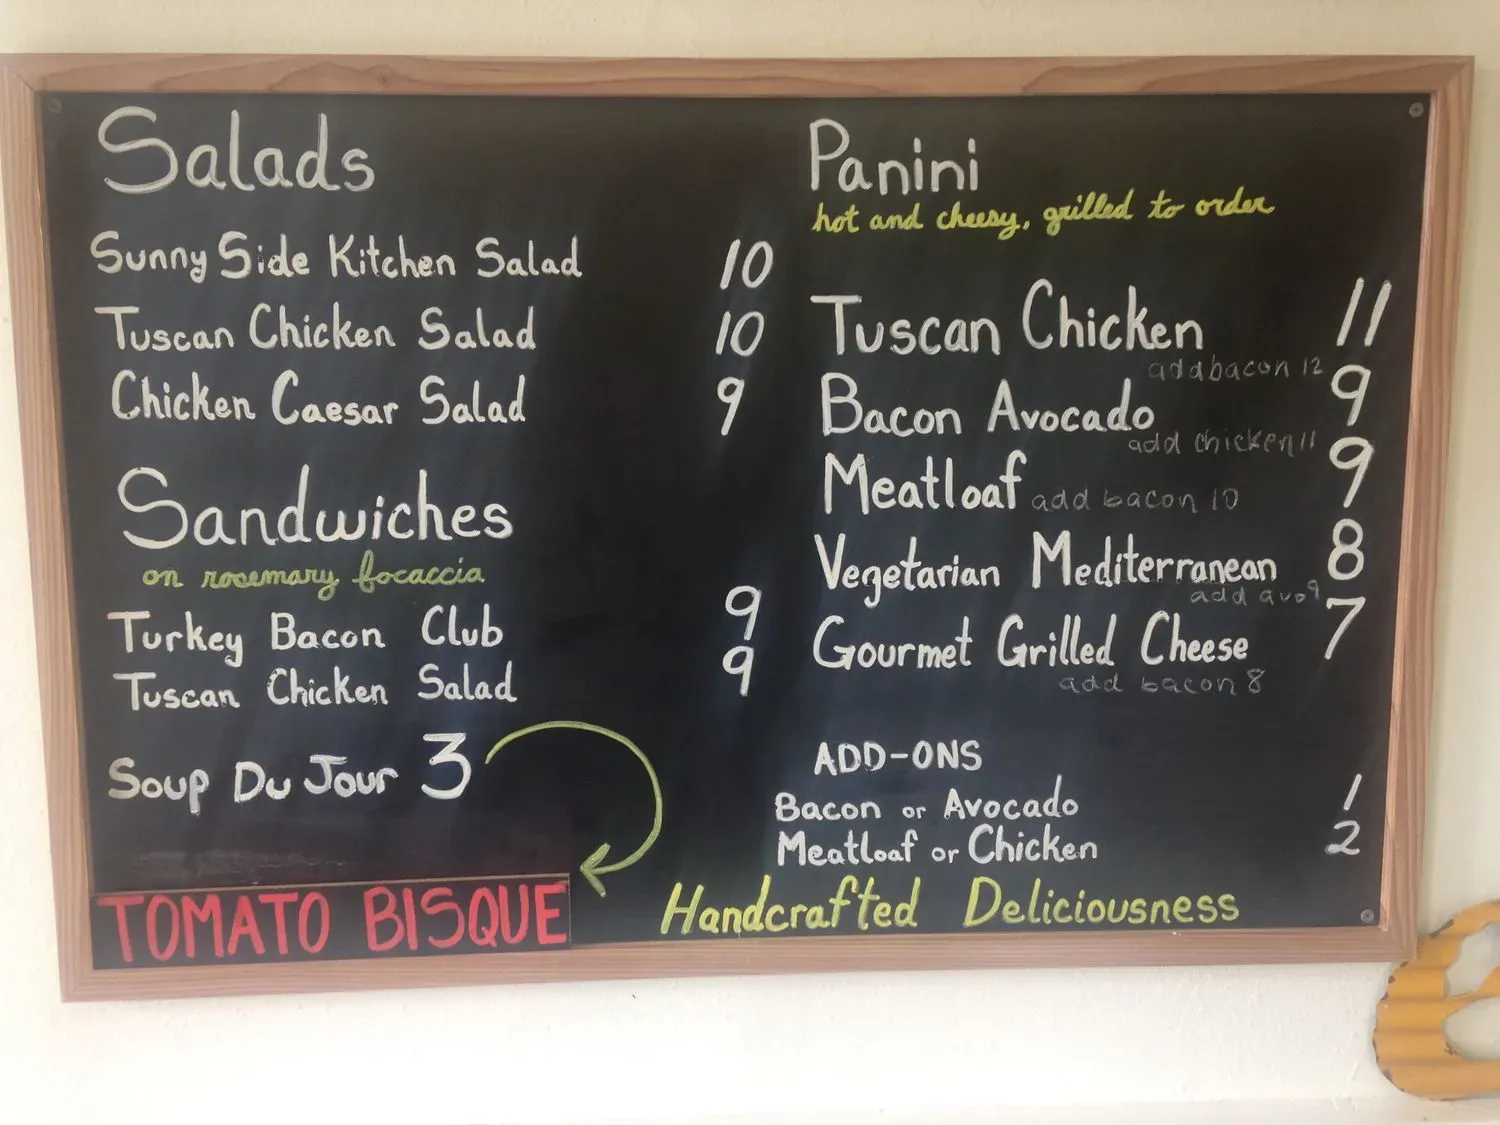 Salads
Sunny Side Kitchen Salad 10
Tuscan Chicken Salad 10
Chicken Caesar Salad 9
Sandwiches
on rosemary focaccia
Turkey Bacon Club 9
Tuscan Chicken Salad 9
Soup Du Jour 3
TOMATO BISQUE
Panini
hot and cheesy, grilled to order
Tuscan Chicken 11
add bacon 12
Bacon Avocado 9
add chicken 11
Meatloaf add bacon 10 9
Vegetarian Mediterranean 8
add avo 9
Gourmet Grilled Cheese 7
add bacon 8
ADD-ONS
Bacon or Avocado 1
Meatloaf or Chicken 2
Handcrafted Deliciousness